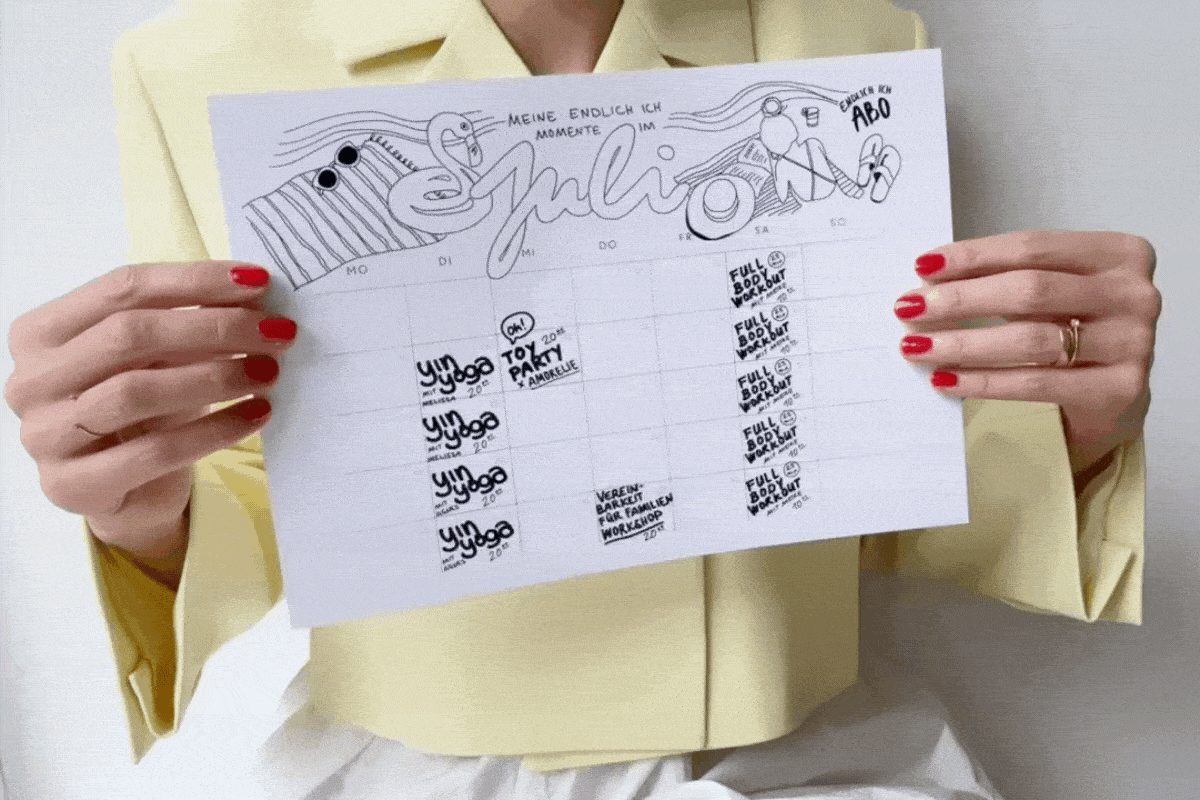 MEINE ENDLICH ICH
MOMENTE IM
Juli
ENDLICH ICH
ABO
MO DI MI DO FR SA SO
FULL
BODY
WORKOUT
MIT MEIKE 10
oh!
TOY 20
PARTY
X AMORELIE
FULL
BODY
WORKOUT
MIT MEIKE 10
yin
yoga
MIT
MELISSA 20
FULL
BODY
WORKOUT
MIT MEIKE 10
yin
yoga
MIT
MELISSA 20
FULL
BODY
WORKOUT
MIT MEIKE 10
yin
yoga
MIT 20
VEREIN-
BARKEIT
FÜR FAMILIEN
WORKSHOP
20
FULL
BODY
WORKOUT
MIT MEIKE 10
yin
yoga
MIT 20